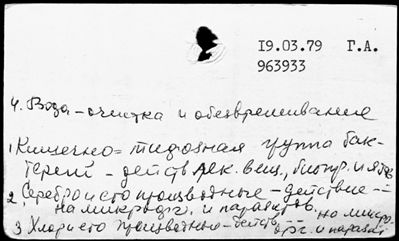 19.03.79 Г.А.
963933
4. Вода - очистка и обезвреживание
1. Кишечно=тифозная группа бак-
терий - действ. лек. вещ., биопр. и ядов
2. Серебро и его производные - действие -
на микроорг. и паразитов
3. Хлор и его производные - действ. - на микро-
орг. и паразит